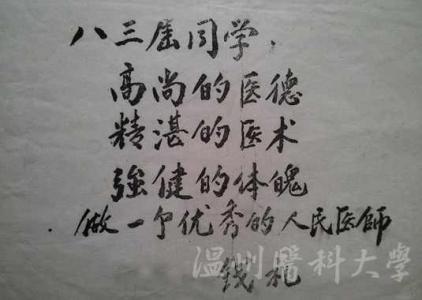 八三届同学，
高尚的医德
精湛的医术
強健的体魄
做一个优秀的人民医師
钱礼
温州醫科大學